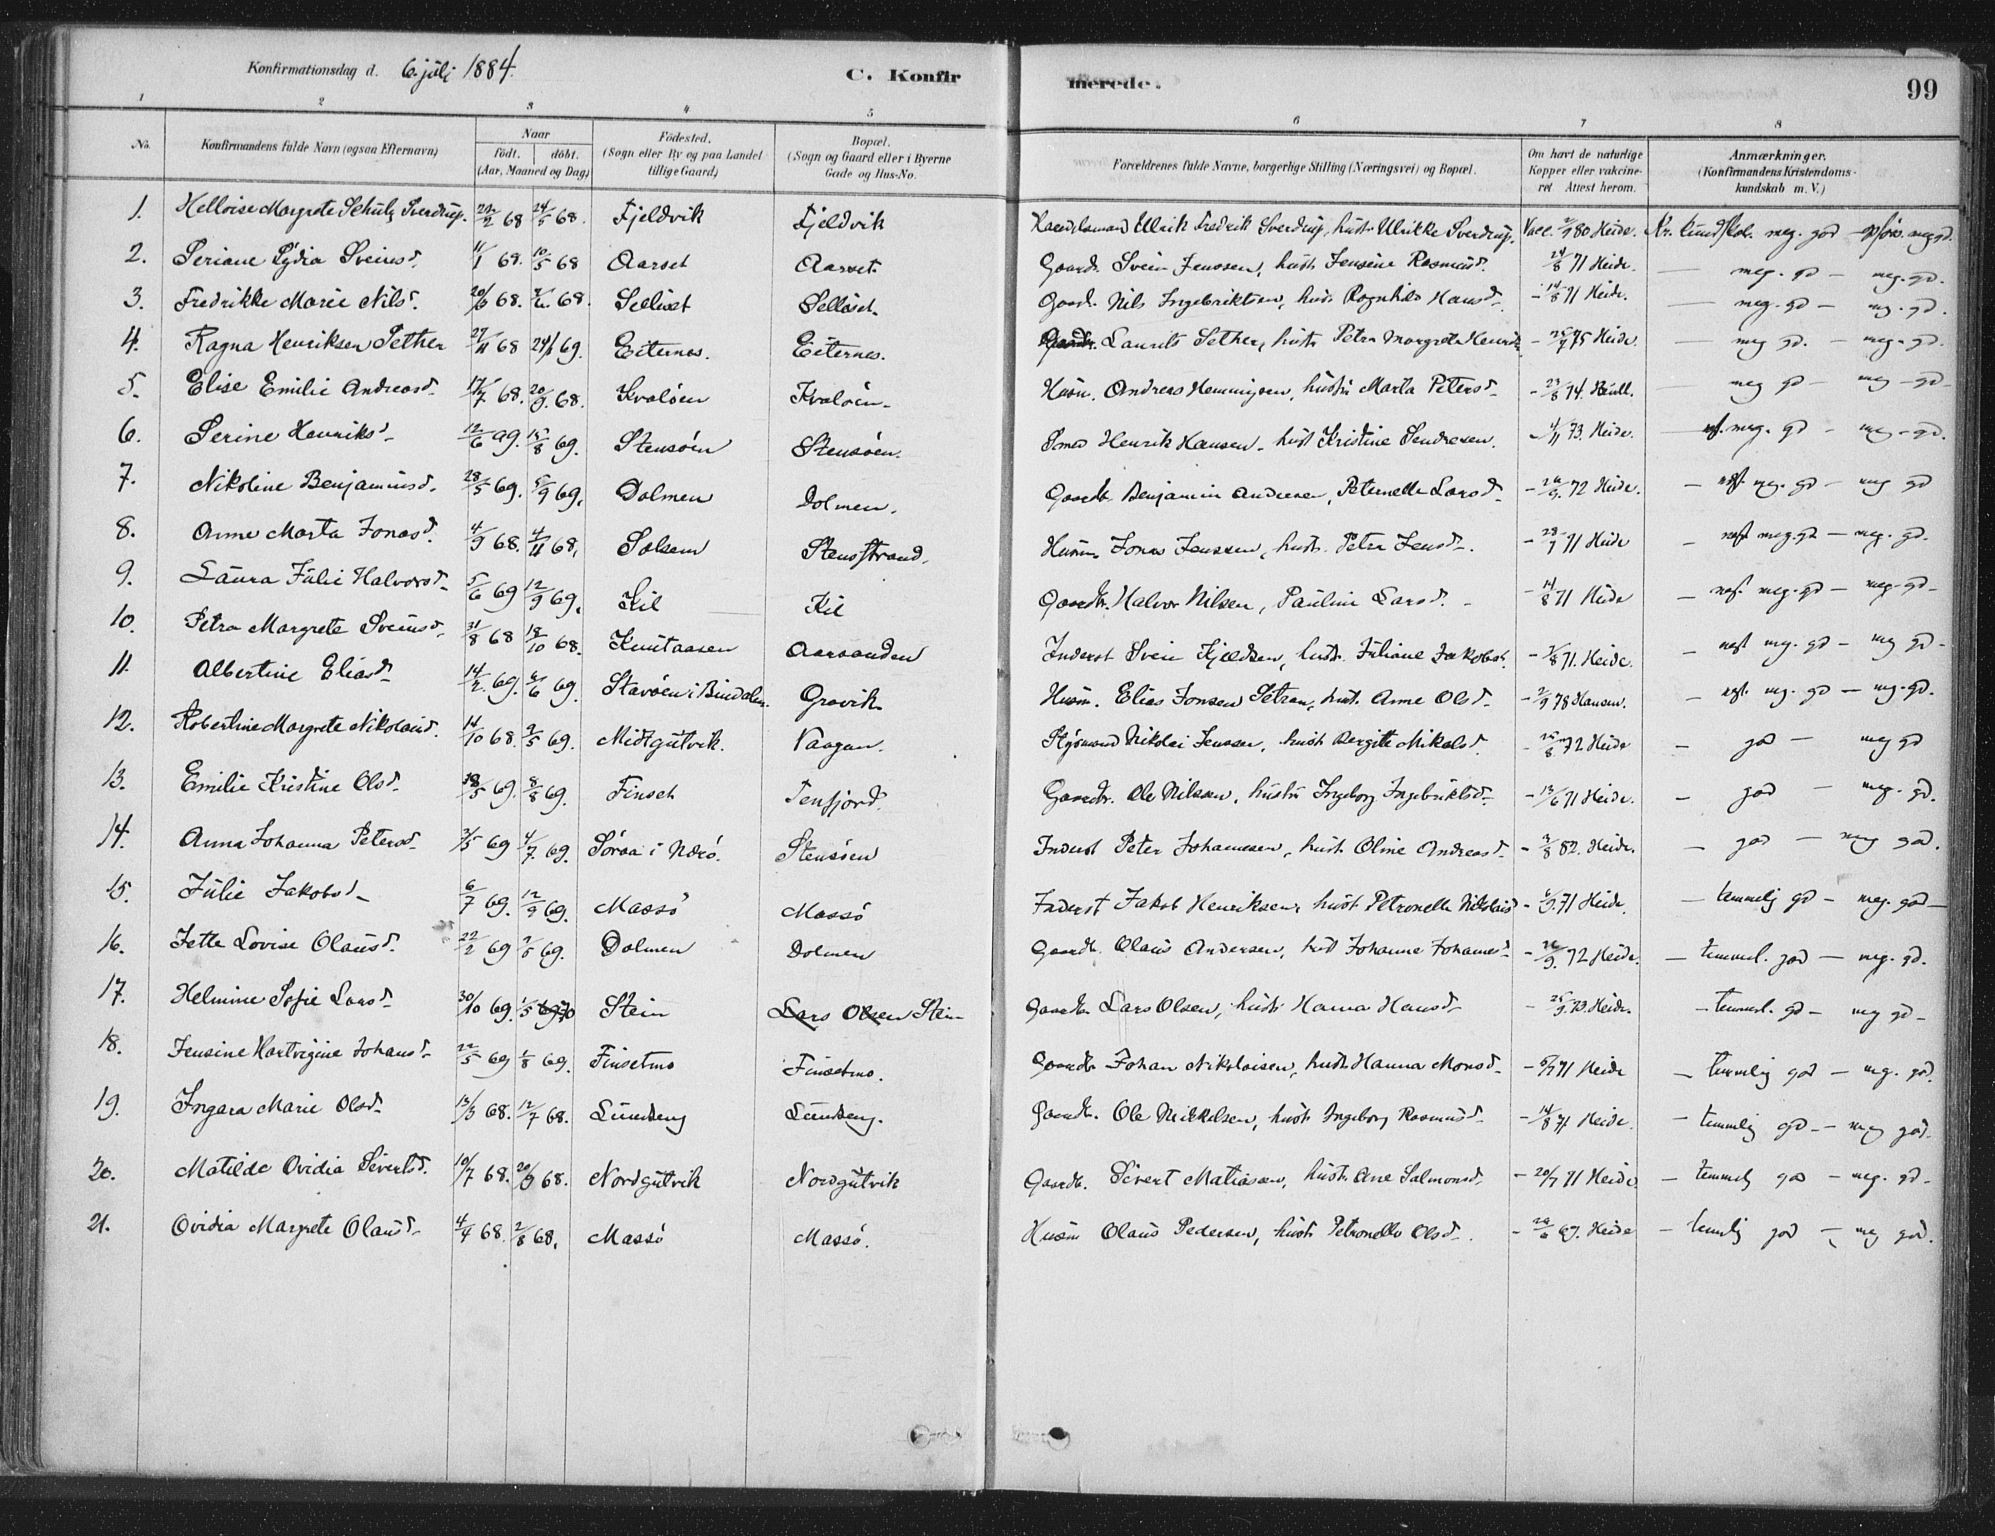 Konfirmationsdag d. 6. juli 1884. C. Konfirmerede. 99
1 2 3 4 5 6 7 8
No. Konfirmandens fulde Navn (ogsaa Efternavn) Naar födt. döbt. (Aar, Maaned og Dag) Födested. (Sogn eller By og paa Landet tillige Gaard) Bopæl. (Sogn og Gaard eller i Byerne Gade og Hus-No. Forældrenes fulde Navne, borgerlige Stilling (Næringsvei) og Bopæl. Om havt de naturlige Kopper eller vakcineret Attest herom. Anmærkninger. (Konfirmandens Kristendomskundskab m. V.)
1. Helloise Margrete Schulz Sverdrup. 22/2 68 24/5 68. Fjeldvik Fjeldvik Handelsmand Ullrik Fredrik Sverdrup, hustr Ulrikke Sverdrup. Vacc. 2/9 80 Heide. meg. god meg gd.
2. Seriane Lydia Sveinsd. 11/1 68. 10/5 68 Aarset Aarset. Gaardb. Svein Jenssen, hustr Jensine Rasmusd. 24/8 71 Heide. — meg. gd — meg. gd.
3. Fredrikke Marie Nilsd. 20/6 68. 68. Sellæset Sellæset. Gaardb. Nils Ingebriktsen, hustr Ragnhild Hansd. - 14/8 71 Heide. — meg. gd — meg. gd.
4. Ragna Henriksen Sether 27/11 68 24/1 69. Eiternes. Eiternes. Laurits Sether, hustr Petra Margrete Henriks - 75 Heide. — meg gd. — meg. gd.
5. Elise Emilie Andreasd. 17/7 68. 20/9. 68. Kvaløen Kvaløen. Husm. Andreas Hemmingsen, hustr Marta Petersd - 23/8 74. — meg gd — meg gd
6. Serine Henriksd 12/6 69. 15/8 69. Stensøen Stensøen. Smed Henrik Hansen. hust Kristine Sendresen. - 4/11 73. Heide. — meg. gd — meg. gd.
7. Nikoline Benjaminsd. 28/5 69. 5/9 69. Dolmen Dolmen. Gaardb. Benjamin Andresen, Peternelle Larsd - 26/9. 72 Heide. — næst meg. gd — meg gd
8. Anne Marta Jonasd. 4/9 68. 4/11 68. Solsem Stensstrand. Husm Jonas Jenssen, hustr. Petra Jensd. - 28/7 71 Heide — næst meg. gd — meg. gd.
9. Laura Julie Halvorsd 5/6 69 12/9 69. Kil Kil Gaardb. Halvor Nilsen, Pauline Larsd. - 14/8 71 Heide — næst meg. gd — meg. gd
10. Petra Margrete Sveinsd. 31/8 68 18/10 68. Knutaasen Aarsanden Inderst Svein Kjeldsen, hustr. Juliane Jakobsd. - 7/8 71. Heide. — næst meg. gd — meg gd
11. Albertine Eliasd 14/2. 69. 6 69. Stavøen i Bindalen. Gravik Husm. Elias Jonsen Setran, hust. Anne Olsd - 2/9 78 Hansen. — næst. meg. gd — meg. gd.
12. Robertine Margrete Nikolaisd. 14/10 68. 2/5 69. Midtgutvik. Vaagan. Styrmand Nikolai Jenssen, hust Bergitte Mikalsd. - 25/8 72 Heide — god — meg gd
13. Emilie Kristine Olsd. 5 69. 8/8 69. Finset Terfjord. Gaardb. Ole Nilssen, hustr Ingeborg Ingebriktsd - 13/6 71 Heide. — god — meg. gd.
14. Anna Johanna Petersd. 3/5 69 4/7. 69. Søraa i Nærö. Stensøen Inderst Peter Johannesen, hust. Oline Andreasd - 3/8 82. Heide. — god — meg god.
15. Julie Jakobsd 6/7 69. 12/9 69. Massö Massö Inderst Jakob Henriksen, hust Petronelle Nikolaisd - 6/9. 71 Heide. — temmelig gd — meg. god
16. Jette Lovise Olausd. 22/2 69 2/5 69. Dolmen Dolmen Gaardb. Olaus Andersen, hust Johanne Johannesd - 26/9. 72 Heide. — temmel. god — meg. gd.
17. Helmine Sofie Larsd 30/10 69. 1/5 70 Stein Lars Olsen Stein Gaardb. Lars Olsen, hustr Hanna Hansd - 25/9. 73. Heide. — temmel. gd — meg gd
18. Jensine Hartvigine Johansd 22/5 69 1/8 69. Finsetmo Finsetmo. Gaardb. Johan Nikolaisen, hust Hanna Monsd - 71 Heide — temmelig god — meg. god.
19. Ingara Marie Olsd. 13/3 68. 12/7 68. Lundseng Lundseng. Gaardb. Ole Mikkelsen, hust Ingeborg Rasmusd - 14/8 71 Heide. — temmelig gd — meg god.
20. Matilde Ovidia Sivertsd. 10/7 68. 20/9 68. Nordgutvik Nordgutvik Gaardb. Sivert Matiassen, hustr Ane Salmonsd, - 20/7 71 Heide. — temmelig god — meg. gd.
21. Ovidia Margrete Olausd 4/4 68. 2/8 68. Massö Massö. Husm Olaus Pedersen, hustr Petronella Olsd. - 69. Heide — temmelig god — meg god.